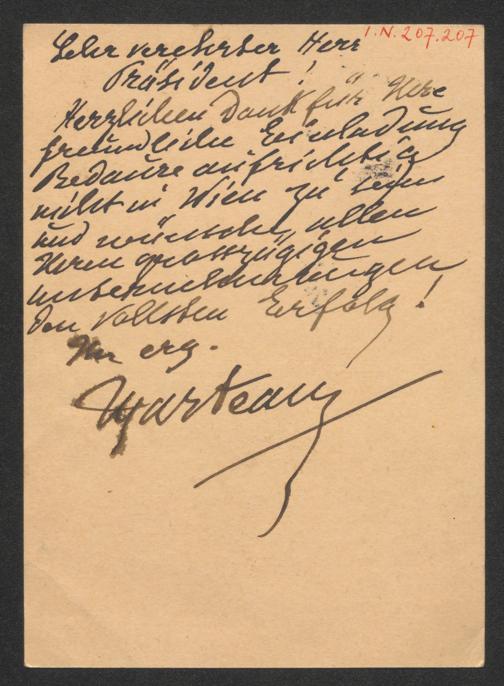 I.N. 207.207
Sehr verehrter Herr
Präsident!
Herzlichen Dank für Ihre
freundliche Einladung
Bedaure aufrichtig
nicht in Wien zu sein
und wünsche allen
Ihren grosszügigen
Unternehmungen
den vollsten Erfolg!
Ihr erg.
Marteau